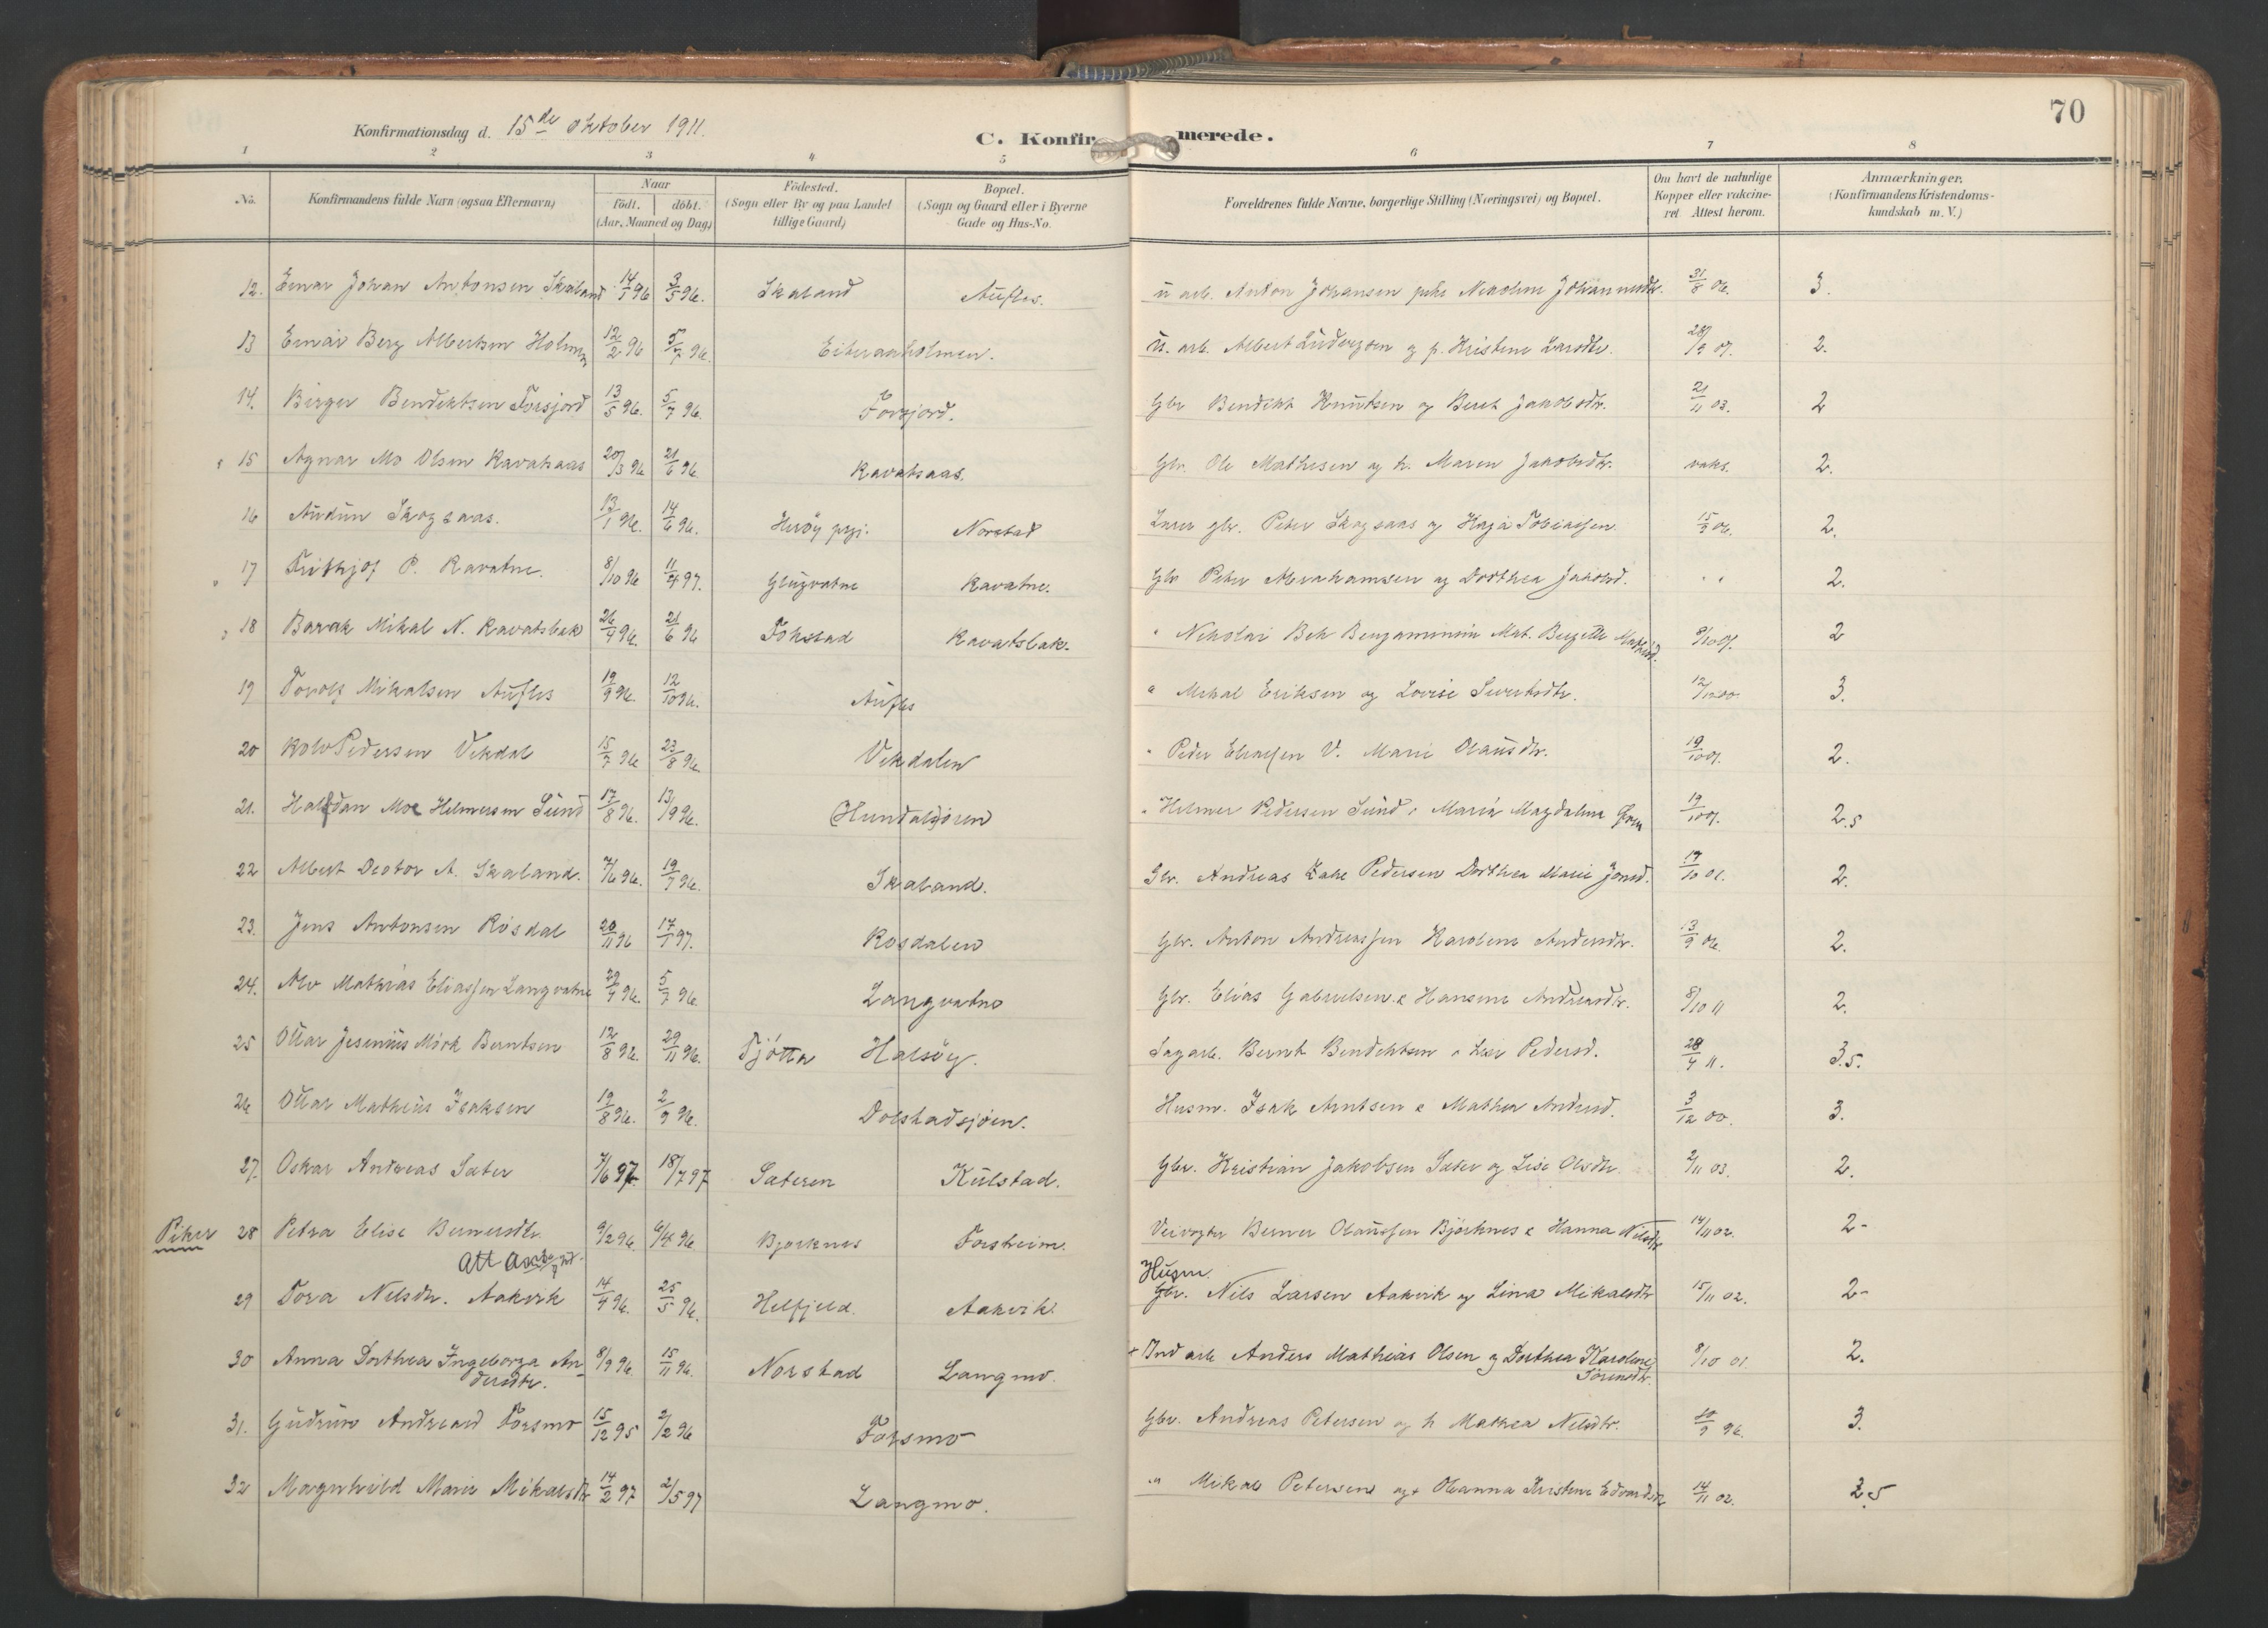 70
Konfirmationsdag d. 15de oktober 1911.
C. Konfirmerede.
1 2 3 4 5 6 7 8
No. Konfirmandens fulde Navn (ogsaa Efternavn) Naar født. døbt. (Aar, Maaned og Dag) Fødested. (Sogn eller By og paa Landet tillige Gaard) Bopæl. (Sogn og Gaard eller i Byerne Gade og Hus-No. Forældrenes fulde Navne, borgerlige Stilling (Næringsvei) og Bopæl. Om havt de naturlige Kopper eller vakcineret. Attest herom. Anmærkninger. (Konfirmandens Kristendomskundskab m. V.)
12. Einar Johan Antonsen Skaland 14/1 96 3/5 96. Skaland Aufles. u arb. Anton Johansen pike Nekoline 31/8 06. 3.
13 Einar Berg Albertsen 12/2 96 5/7 96. Eiteraaholmen. u. arb. Albert Ludvigsen og p. Kristine Larsdtr. 2.
14. Birger Bendiktsen Forsjord 13/5 96. 5/7 96. Forsjord. Gbr Bendikt Knutsen og Beret Jakobsdtr. 21/11 03. 2
15 Agnar Mo Olsen Kavatsaas 20/3 96 21/6 96 Kavatsaas. Gbr. Ole Mathisen og h. Maren Jakobsdtr. vaks. 2.
16 Audun Skogsaas. 13/1 96. 14/6 96. Herøy prgj. Norstad Lærer gbr. Peter Skogsaas og 15/9 06. 2.
17 Frithjof P. Ravatne. 8/10 96 11/4 97. Glugvatne Ravatne. Gbr Peter Abrahamsen og Dorthea Jakobsd. " " 2.
18 Barak Mikal N. Kavatsbak 26/4 96. 21/6 96 Fokstad Kavatsbak. " Nikolai Bek Benjaminsen Mat. 2
19 Torolf Mikalsen Aufles 19/9 96. 12/10 96. Aufles " Mikal Eriksen og Lovise Sivertsdtr. 12/12 00. 3.
20 Rolv Pedersen Vekdal 15/7 96 23/8 96 Vekdalen " Peder Eliassen V. Marie Olausdtr. 2.
21. Halfdan Moe Helmersen Sund 17/8 96. 13/9 96. " Helmer Pedersen Sund, Maria Magdalena 2.5
22 Albert A. Skaland. 7/6 96. 19/7 96. Skaland. Gbr. Andreas Pedersen Dorthea Marie Jonsd. 19/10 01. 2.
23. Jens Antonsen Rosdal 20/11 96 17/1 97. Rosdalen Gbr. Anton Andreassen Karoline Andersdtr. 13/9 06. 2.
24. Alv Mathias Eliassen Langvatne 29/4 96. 5/7 96. Langvatne Gbr. Elias Gabrielsen & Hansine Andreasdtr. 8/10 11 2.
25 Ottar Jesenius Mörk Berntsen 12/8 96. 29/11 96. Tjötta Halsöy. Sagarb. Bernt Bendiktsen Pedersd. 28/4 11. 3.5.
26 Ottar Matheus Isaksen 19/8 96. 2/9 96. Dolstadsjöen. Husm. Isak Arntsen & Mathea Andersd. 3/12 00. 3.
27. Oskar Andreas Sæter 7/6 97 18/7 97 Sæteren Kulstad. Gbr. Kristian Jakobsen Sæter og Lise Olsdtr. 2/11 03. 2.
Piker 28 Petra Elise Bernersdtr. 9/2 96. 6/4 96 Bjorknes Forsheim. Veivogter Berner Olaussen Björknes & Hanna Nilsdtr 14/11 02. 2-
Att
29 Tora Nilsdtr. Aakvik 14/4 96. 25/5 96. Helfjeld. Aakvik. Husm. Gbr. Nils Larsen Aakvik og Lina Mikalsdtr 15/11 02. 2-
30 Anna Dorthea Ingeborga Andersdtr. 8/9 96. 15/11 96. Norstad Langmo. + Ind arb Anders Mathias Olsen og Dorthea Karoline Sörensdtr. 8/10 01. 2.
31. Gudrun Andreasd Forsmo 15/12 95 2/2 96 Forsmo Gbr. Andreas Petersen og h Mathea Nilsdtr. 3.
32 Magnhild Marie Mikalsdtr 14/2 97 2/5 97 Langmo. " Mikal Petersen og Oleanna Kristine Edvardsdtr 14/11 02. 2.5